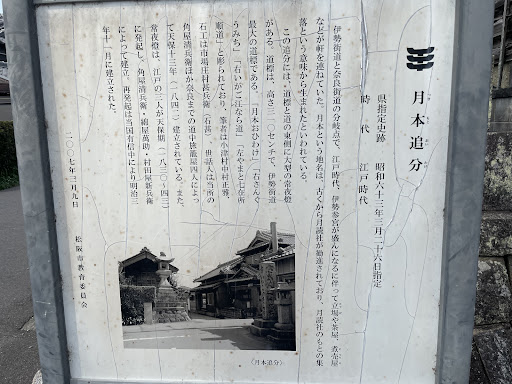 月本追分
つき もと おい わけ
県指定史跡　昭和六十三年三月二十六日指定
時　代　江戸時代
伊勢街道と奈良街道の分岐点で、江戸時代、伊勢参宮が盛んになるに伴って立場や茶屋、煮売屋
などが軒を連ねていた。月本という地名は、古くから月読社が勧進されており、月読社のもとの集
落という意味から生まれたといわれている。
この追分には、道標と道の東側に大型の常夜燈
がある。道標は、高さ三一〇センチで、伊勢街道
最大の道標である。「月本おひわけ」「右さんぐ
うみち」「右いがご江なら道」「左やまと七在所
順道」と彫られており、筆者は小津村中村正雅、
石工は市場庄村甚兵衛（石甚）、世話人は当所の
角屋清兵衛ほか奈良までの道中旅籠屋四人によっ
て天保十三年（一八四二）建立されている。また、
常夜燈は、江戸の二人が天保期（一八三〇〜四三）
に発起し、角屋清兵衛・綿屋萬助・村田屋新兵衛
によって建立、再発起は当国有信中により明治三
年十一月に建立された。
二〇〇七年三月九日
松阪市教育委員会
（月本追分）